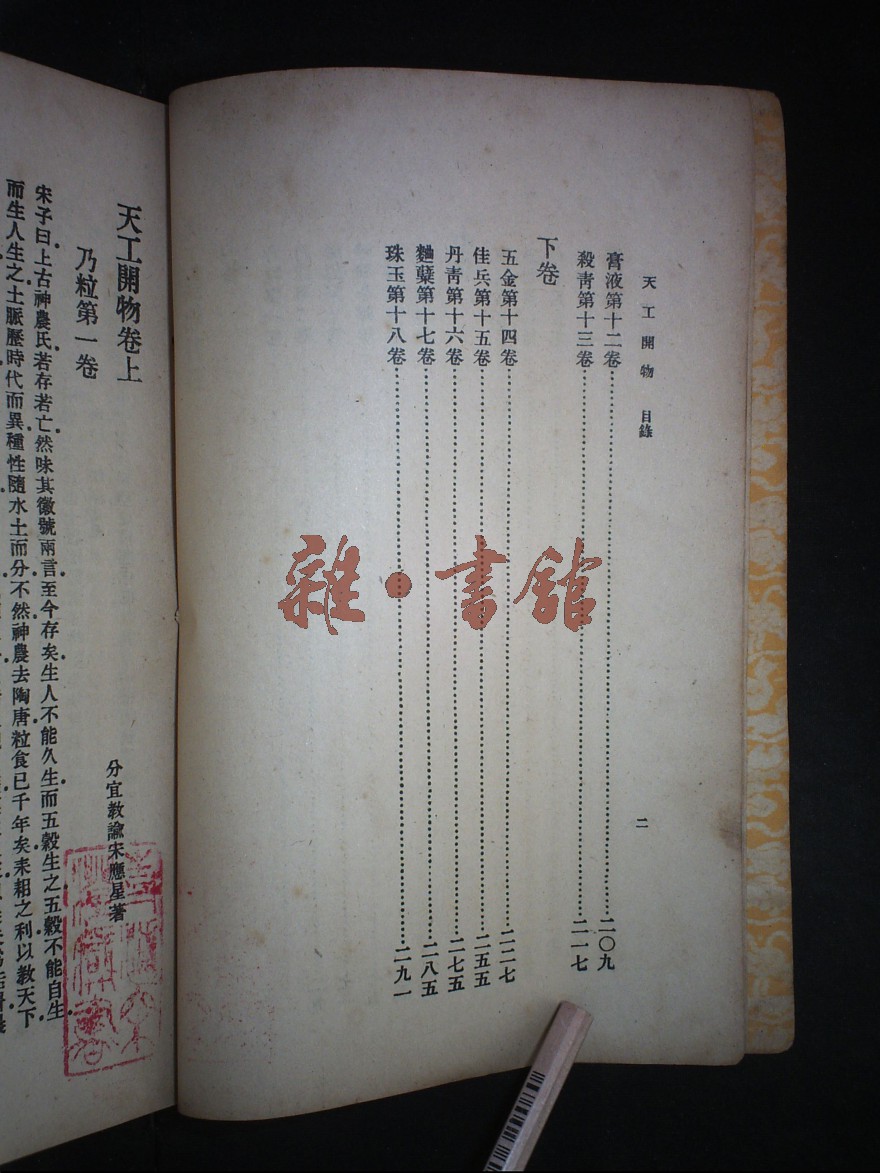 天工開物 目錄 二
膏液第十二卷 二〇九
殺靑第十三卷 二一七
下卷
五金第十四卷 二二七
佳兵第十五卷 二五五
丹靑第十六卷 二七五
麯糵第十七卷 二八五
珠玉第十八卷 二九一
雜·書館
天工開物卷上
分宜教諭宋應星著
乃粒第一卷
宋子曰上古神農氏若存若亡然味其徽號兩言至今存矣生人不能久生而五穀生之五穀不能自生
而生人生之土脈歷時代而異種性隨水土而分不然神農去陶唐粒食已千年矣耒耜之利以教天下